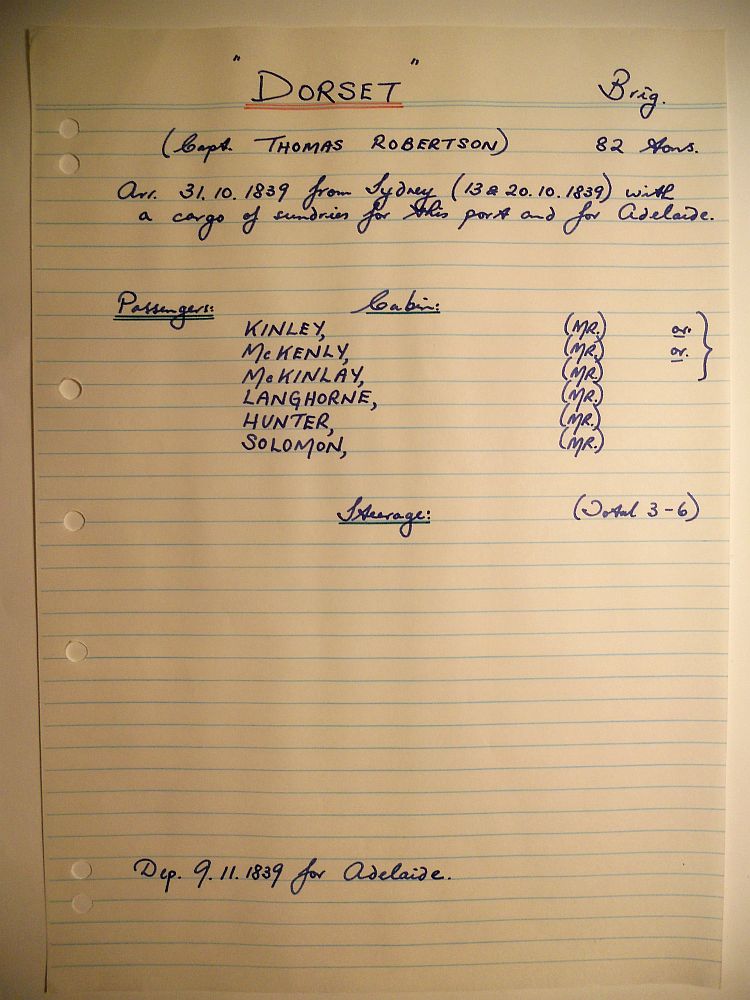 "DORSET" Brig.
(Capt. THOMAS ROBERTSON) 82 Tons.
Arr. 31.10.1839 from Sydney (13 & 20.10.1839) with
a cargo of sundries for this port and for Adelaide.
Passengers: Cabin:
KINLEY, (MR.) or.
McKENLY, (MR.) or.
McKINLAY, (MR.)
LANGHORNE, (MR.)
HUNTER, (MR.)
SOLOMON, (MR.)
Steerage: (Total 3-6)
Dep. 9.11.1839 for Adelaide.